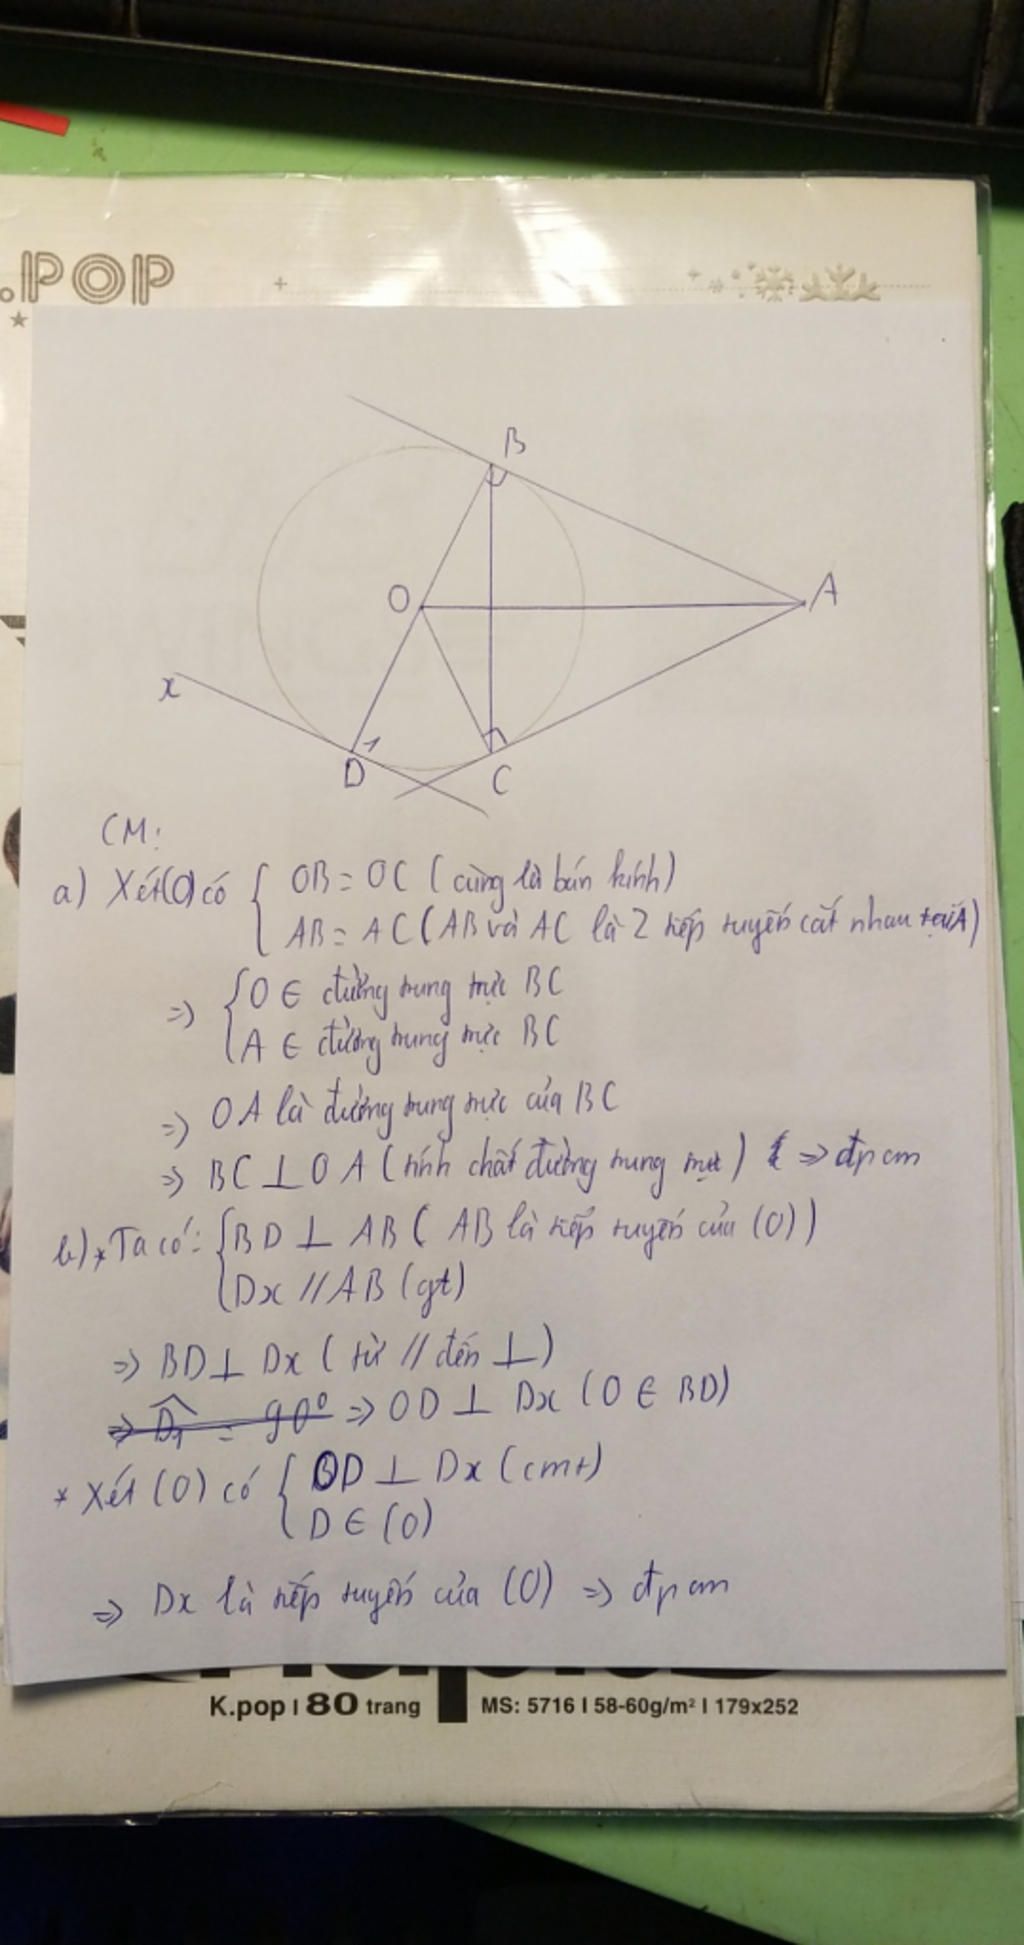 .POP
B
O
A
x
1
D
C
CM:
a) Xét (O) có { OB = OC (cùng là bán kính)
AB = AC (AB và AC là 2 tiếp tuyến cắt nhau tại A)
=> { O ∈ đường trung trực BC
A ∈ đường trung trực BC
=> OA là đường trung trực của BC
=> BC ⊥ OA (tính chất đường trung trực) => đpcm
b) * Ta có: { BD ⊥ AB (AB là tiếp tuyến của (O))
Dx // AB (gt)
=> BD ⊥ Dx (từ // đến ⊥)
=> D̂₁ = 90° => OD ⊥ Dx (O ∈ BD)
* Xét (O) có { OD ⊥ Dx (cmt)
D ∈ (O)
=> Dx là tiếp tuyến của (O) => đpcm
K.pop | 80 trang MS: 5716 | 58-60g/m² | 179x252